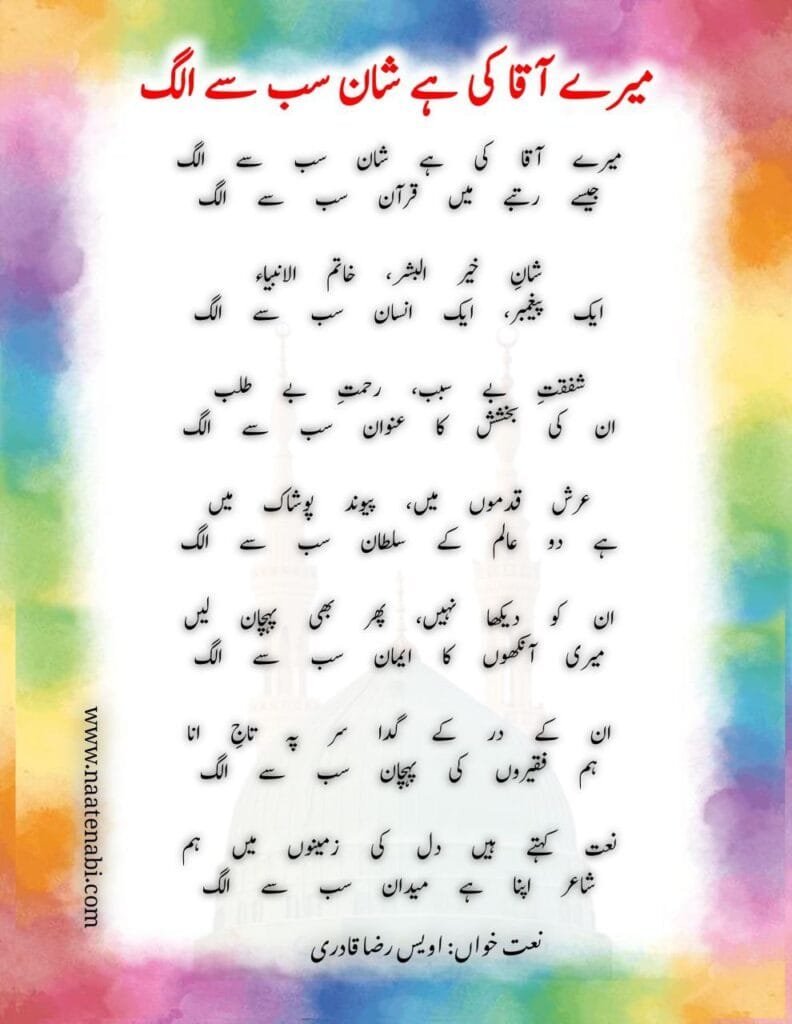 میرے آقا کی ہے شان سب سے الگ
میرے آقا کی ہے شان سب سے الگ
جیسے رتبے میں قرآن سب سے الگ
شانِ خیر البشر، خاتم الانبیاء
ایک پیغمبر، ایک انسان سب سے الگ
شفقتِ بے سبب، رحمتِ بے طلب
ان کی بخشش کا عنوان سب سے الگ
عرش قدموں میں، پیوند پوشاک میں
ہے دو عالم کے سلطان سب سے الگ
ان کو دیکھا نہیں، پھر بھی پہچان لیں
میری آنکھوں کا ایمان سب سے الگ
ان کے در کے گدا سر پہ تاجِ انا
ہم فقیروں کی پہچان سب سے الگ
نعت کہتے ہیں دل کی زمینوں میں ہم
شاعر اپنا ہے میدان سب سے الگ
نعت خواں: اویس رضا قادری
www.naatenabi.com